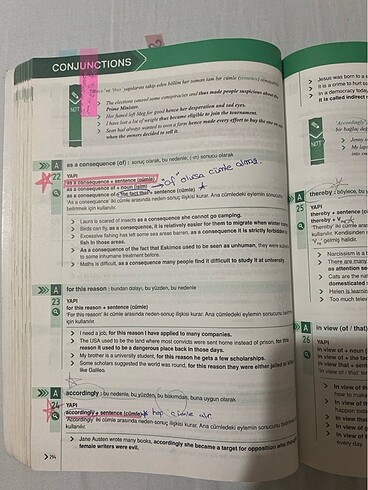 CONJUNCTIONS
"hence" ve "thus" yapılarını takip eden bölüm her zaman tam bir cümle (sentence) olmayabilir.
NOT
The elections caused some conspiracies and thus made people suspicious about the
Prime Minister.
Her famed left
for good hence her desperation and sad eyes.
I have lost a lot of weight thus became eligible to join the tournament.
Sean had always wanted to own a farm hence made every effort to buy the one
when the owners decided to sell it.
A as a consequence (of) : sonuç olarak, bu nedenle; (-in) sonucu olarak
22 YAPI
as a consequence + sentence (cümle)
as a consequence of + noun (isim) → "of" olursa cümle almaz.
as a consequence of + the fact that + sentence (cümle)
'As a consequence' iki cümle arasında neden sonuç ilişkisi kurar. Ana cümledeki eylemin sonucunu
belirtmek için kullanılır.
Laura is scared of insects as a consequence she cannot go camping.
Birds can fly, as a consequence, it is relatively easier for migrants to move when winter comes.
Excessive fishing has left some sea areas barren, as a consequence it is strictly forbidden to
fish in those areas.
As a consequence of the fact that Eskimos used to be seen as unhuman, they were subjected
to some inhumane treatment before.
Maths is difficult, as a consequence many people find it difficult to study it at university.
A for this reason : bundan dolayı, bu yüzden, bu nedenle
23 YAPI
for this reason + sentence (cümle)
'For this reason' iki cümle arasında neden-sonuç ilişkisi kurar. Ana cümledeki eylemin sonucunu belirtmek
için kullanılır.
I need a job, for this reason I have applied to many companies.
The USA used to be the land where most convicts were sent home instead of prison, for this
reason it used to be a dangerous place back in those days.
My brother is a university student, for this reason he gets a few scholarships.
Some scholars suggested the world was round, for this reason they were either jailed or killed
like Galileo.
A accordingly : bu nedenle, bu yüzden, bu bakımdan, buna uygun olarak
24 YAPI
accordingly + sentence (cümle) hep cümle alır.
'Accordingly' iki cümle arasında neden sonuç ilişkisi kurar. Ana cümledeki eylemin sonucunu belirtmek için
kullanılır.
Jane Austen wrote many books, accordingly she became a target for opposition who thought
female writers were evil.
294
Jesus was born to a
It is a crime to hurt so
In a democracy today
It is called indirect
"Accordingly"
bir bağlaç de
NOT
Jenny
My lap
into con
A thereby : böylece, bu
25 YAPI
thereby + sentence (cümle)
thereby + V
'Thereby' iki cümle arasında
kullanılır. Kendisinden
gelmiş halidir.
Narcissism is a
There are many
as attention see
Cats are the nat
domesticated
Helen is learning
Too much telev
A in view (of / that)
26 YAPI
in view of + noun (i
in view of + the fac
in view that + sente
'In view of / that'
In view of th
how to make
In view of th
happen today
In view that
In view of
In view of the
every day.